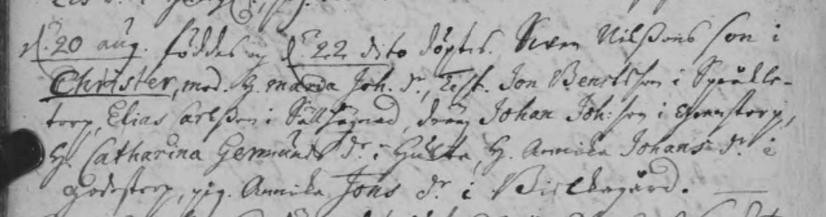 d. 20 aug. föddes og d. 22 dito döptes. Swen Nilssons son i
Christer, mod. H. Marda Joh. dr., Test. Jon Bentsson i
torp, Elias Carlsson i dräng Johan Joh:son i
H. Catharina Gemunds dr. i Hulta, H. Annika Johans dr. i
Godestorp, pig. Annika Jons dr. i Bielkagård.